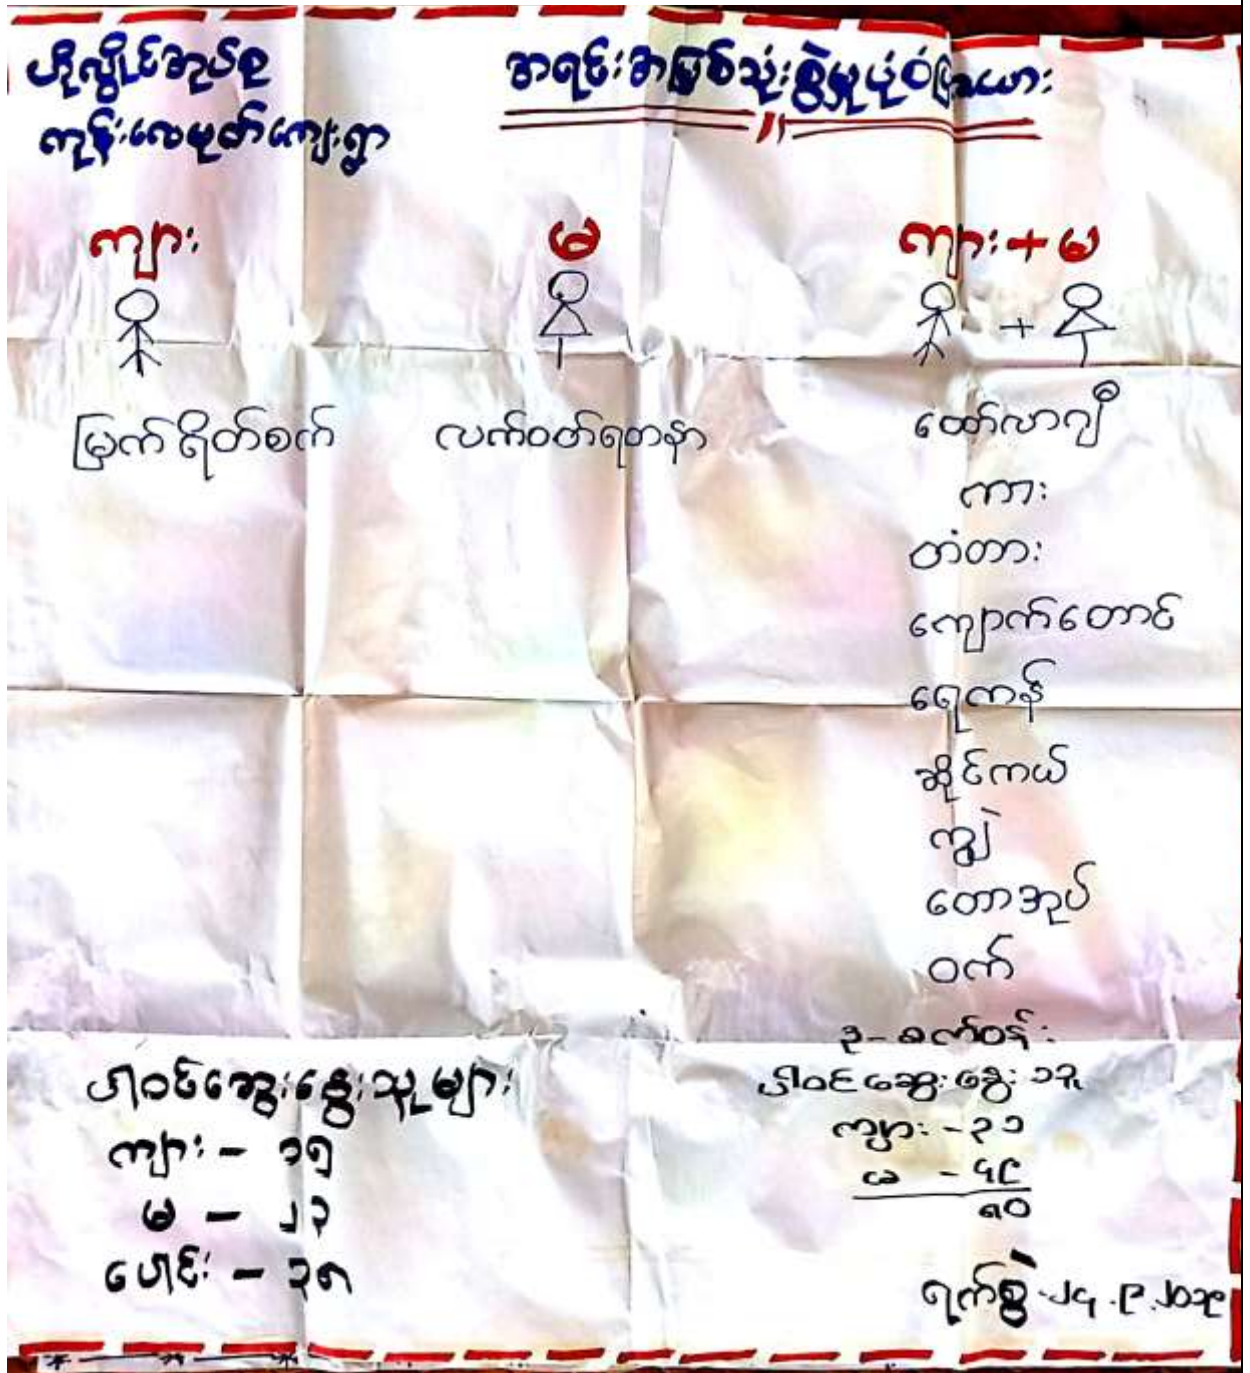 ဟိုလှိုင်အုပ်စု
ကုန်းလေမုတ်ကျေးရွာ
အရင်းအမြစ်သုံးစွဲမှုပုံစံပြဇယား
ကျား
မ
ကျား + မ
+
မြက်ရိတ်စက်
လက်ဝတ်ရတနာ
ထော်လာဂျီ
ကား
တံတား
ကျောက်တောင်
ရေကန်
ဆိုင်ကယ်
ကျွဲ
တောအုပ်
ဝက်
ပါဝင်ဆွေးနွေးသူများ
ကျား – ၁၅
မ – ၂၃
ပေါင်း – ၃၈
ပါဝင်ဆွေးနွေးသူ
ကျား – ၃၁
မ – ၄၉
၈၀
ရက်စွဲ - ၂၄.၉.၂၀၁၉